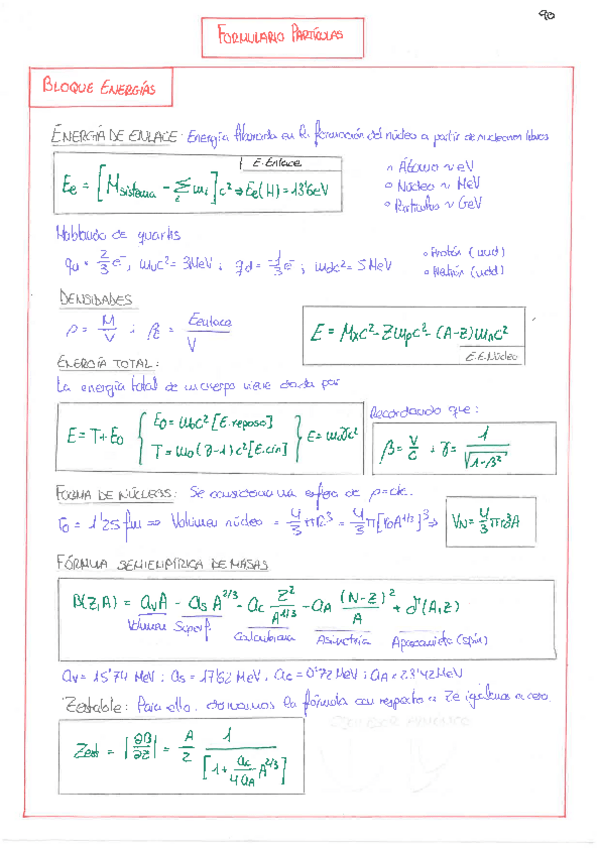 90
FORMULARIO PARTÍCULAS
BLOQUE ENERGÍAS
ENERGÍA DE ENLACE: Energía liberada en la formación del núcleo a partir de nucleones libres
E. Enlace
Ee = [Msistema - Σi mi]c² ⇒ Ee(H) = 13'6eV
Átomo ~ eV
Núcleo ~ MeV
Partículas ~ GeV
Hablando de quarks
qu = 2/3 e⁻, muc² = 3MeV ; qd = -1/3 e⁻ ; mdc² = 5MeV
Protón (uud)
Neutrón (udd)
DENSIDADES
ρ = M/V ; ρE = Eenlace/V
E = Mxc² - Zmpc² - (A-Z)mnc²
E.E.Núcleo
ENERGÍA TOTAL:
La energía total de un cuerpo viene dada por
E = T + E0 { E0 = m0c² [E.reposo]
T = m0(γ-1)c² [E.cin] } E = m0γc²
Recordando que:
β = v/c ; γ = 1/√(1-β²)
FORMA DE NÚCLEOS: Se considera una esfera de ρ=cte.
r0 = 1'25 fm ⇒ Volumen núcleo = 4/3 πR³ = 4/3 π[r0A^1/3]³ ⇒ VN = 4/3 πr0³A
FÓRMULA SEMIEMPÍRICA DE MASAS
B(Z,A) = avA - asA^2/3 - ac Z²/A^1/3 - aA (N-Z)²/A + δ(A,Z)
Volumen Superf. Coulombiana Asimetría Apareamiento (spin)
av = 15'74 MeV ; as = 17'62 MeV, ac = 0'72 MeV ; aA = 23'42 MeV
Zestable: Para ello, derivamos la fórmula con respecto a Z e igualamos a cero.
Zest = |∂B/∂Z| = A/2 1/[1 + ac/4aA A^2/3]